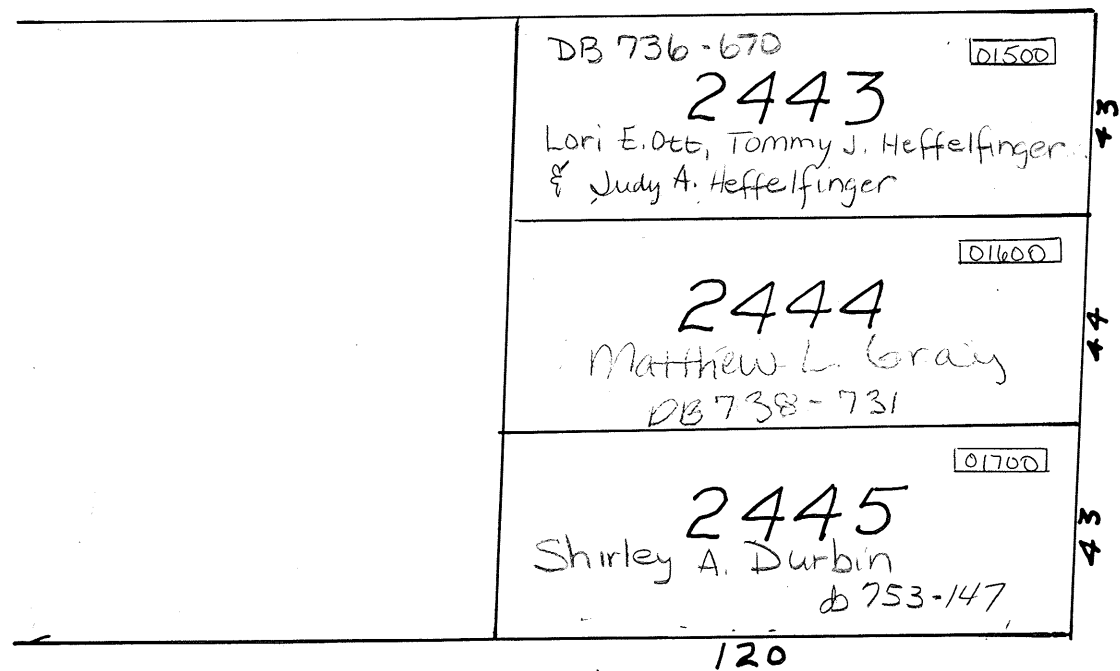 DB 736-670
01500
2443
Lori E. Ott, Tommy J. Heffelfinger
& Judy A. Heffelfinger
43
01600
2444
Matthew L. Gray
DB 738-731
44
01700
2445
Shirley A. Durbin
db 753-147
43
120